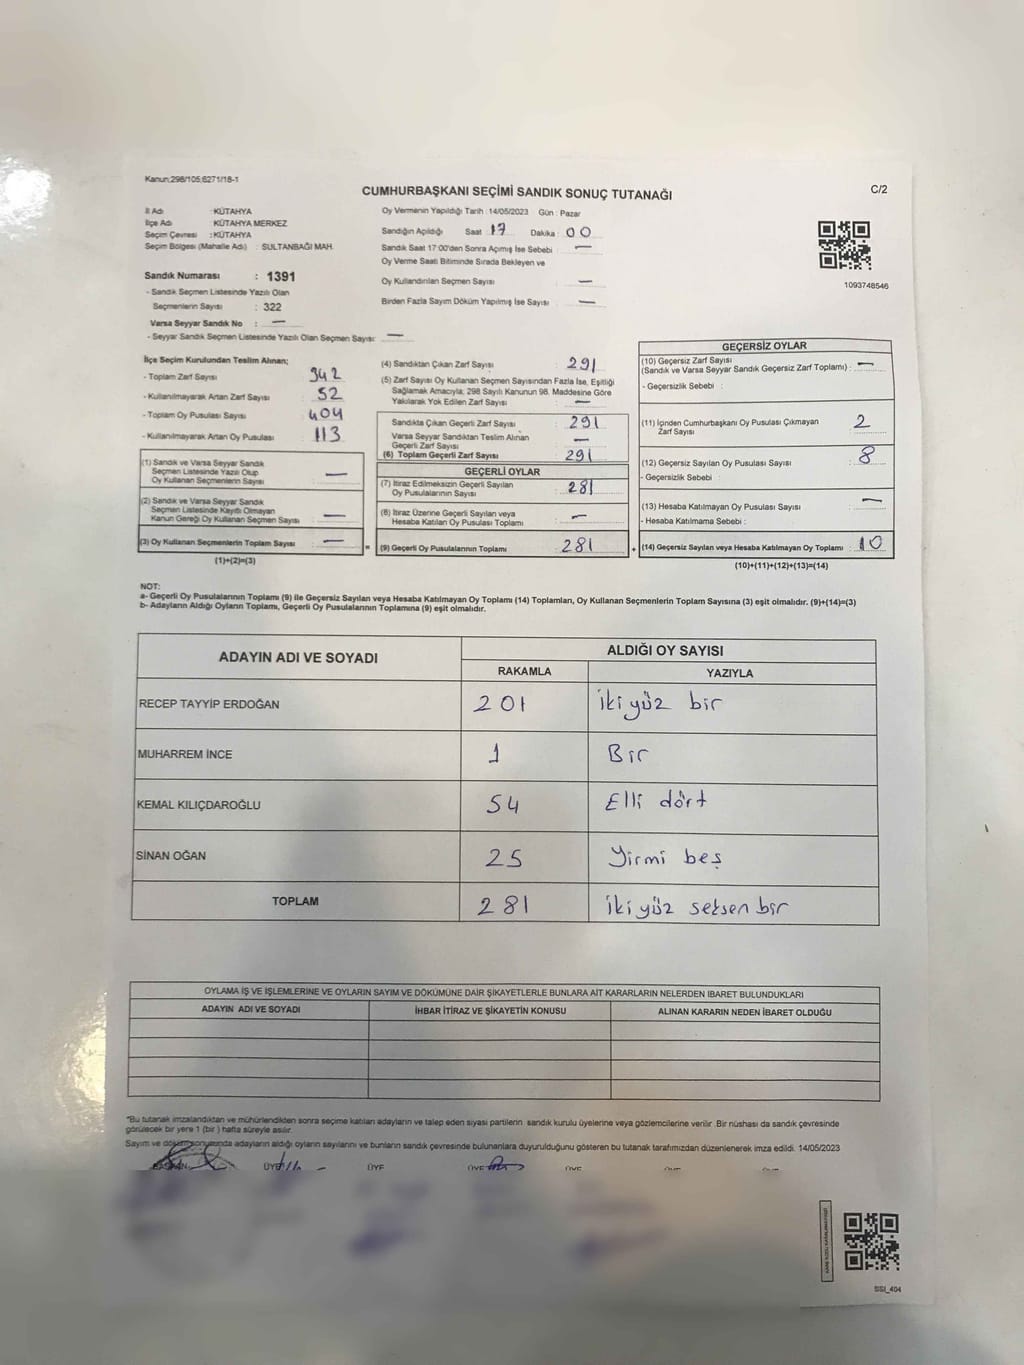 Kanun:298/105,6271/18-1
CUMHURBAŞKANI SEÇİMİ SANDIK SONUÇ TUTANAĞI
C/2
İl Adı : KÜTAHYA
İlçe Adı : KÜTAHYA MERKEZ
Seçim Çevresi : KÜTAHYA
Seçim Bölgesi (Mahalle Adı) : SULTANBAĞI MAH.
Sandık Numarası : 1391
- Sandık Seçmen Listesinde Yazılı Olan
Seçmenlerin Sayısı : 322
Varsa Seyyar Sandık No : —
- Seyyar Sandık Seçmen Listesinde Yazılı Olan Seçmen Sayısı: —
Oy Vermenin Yapıldığı Tarih :14/05/2023 Gün : Pazar
Sandığın Açıldığı Saat : 17 Dakika : 00
Sandık Saat 17:00'den Sonra Açımış İse Sebebi : —
Oy Verme Saati Bitiminde Sırada Bekleyen ve
Oy Kullandırılan Seçmen Sayısı : —
Birden Fazla Sayım Döküm Yapılmış İse Sayısı : —
1093748546
İlçe Seçim Kurulundan Teslim Alınan;
- Toplam Zarf Sayısı : 342
- Kullanılmayarak Artan Zarf Sayısı : 52
- Toplam Oy Pusulası Sayısı : 404
- Kullanılmayarak Artan Oy Pusulası : 113
(1) Sandık ve Varsa Seyyar Sandık
Seçmen Listesinde Yazılı Olup
Oy Kullanan Seçmenlerin Sayısı : —
(2) Sandık ve Varsa Seyyar Sandık
Seçmen Listesinde Kayıtlı Olmayan
Kanun Gereği Oy Kullanan Seçmen Sayısı : —
(3) Oy Kullanan Seçmenlerin Toplam Sayısı : —
(1)+(2)=(3)
(4) Sandıktan Çıkan Zarf Sayısı : 291
(5) Zarf Sayısı Oy Kullanan Seçmen Sayısından Fazla İse, Eşitliği
Sağlamak Amacıyla; 298 Sayılı Kanunun 98. Maddesine Göre
Yakılarak Yok Edilen Zarf Sayısı : —
Sandıkta Çıkan Geçerli Zarf Sayısı : 291
Varsa Seyyar Sandıktan Teslim Alınan
Geçerli Zarf Sayısı : —
(6) Toplam Geçerli Zarf Sayısı : 291
GEÇERLİ OYLAR
(7) İtiraz Edilmeksizin Geçerli Sayılan
Oy Pusulalarının Sayısı : 281
(8) İtiraz Üzerine Geçerli Sayılan veya
Hesaba Katılan Oy Pusulası Toplamı : —
= (9) Geçerli Oy Pusulalarının Toplamı : 281
GEÇERSİZ OYLAR
(10) Geçersiz Zarf Sayısı
(Sandık ve Varsa Seyyar Sandık Geçersiz Zarf Toplamı) : —
- Geçersizlik Sebebi :
(11) İçinden Cumhurbaşkanı Oy Pusulası Çıkmayan
Zarf Sayısı : 2
(12) Geçersiz Sayılan Oy Pusulası Sayısı : 8
- Geçersizlik Sebebi :
(13) Hesaba Katılmayan Oy Pusulası Sayısı : —
- Hesaba Katılmama Sebebi :
+ (14) Geçersiz Sayılan veya Hesaba Katılmayan Oy Toplamı : 10
(10)+(11)+(12)+(13)=(14)
NOT:
a- Geçerli Oy Pusulalarının Toplamı (9) ile Geçersiz Sayılan veya Hesaba Katılmayan Oy Toplamı (14) Toplamları, Oy Kullanan Seçmenlerin Toplam Sayısına (3) eşit olmalıdır. (9)+(14)=(3)
b- Adayların Aldığı Oyların Toplamı, Geçerli Oy Pusulalarının Toplamına (9) eşit olmalıdır.
ADAYIN ADI VE SOYADI
ALDIĞI OY SAYISI
RAKAMLA YAZIYLA
RECEP TAYYİP ERDOĞAN 201 iki yüz bir
MUHARREM İNCE 1 Bir
KEMAL KILIÇDAROĞLU 54 Elli dört
SİNAN OĞAN 25 Yirmi beş
TOPLAM 281 iki yüz seksen bir
OYLAMA İŞ VE İŞLEMLERİNE VE OYLARIN SAYIM VE DÖKÜMÜNE DAİR ŞİKAYETLERLE BUNLARA AİT KARARLARIN NELERDEN İBARET BULUNDUKLARI
ADAYIN ADI VE SOYADI İHBAR İTİRAZ VE ŞİKAYETİN KONUSU ALINAN KARARIN NEDEN İBARET OLDUĞU
*Bu tutanak imzalandıktan ve mühürlendikten sonra seçime katılan adayların ve talep eden siyasi partilerin sandık kurulu üyelerine veya gözlemcilerine verilir. Bir nüshası da sandık çevresinde
görülecek bir yere 1 (bir ) hafta süreyle asılır.
Sayım ve döküm sonunda adayların aldığı oyların sayılarını ve bunların sandık çevresinde bulunanlara duyurulduğunu gösteren bu tutanak tarafımızdan düzenlenerek imza edildi. 14/05/2023
BAŞKAN ÜYE ÜYE ÜYE ÜYE
SSI_404